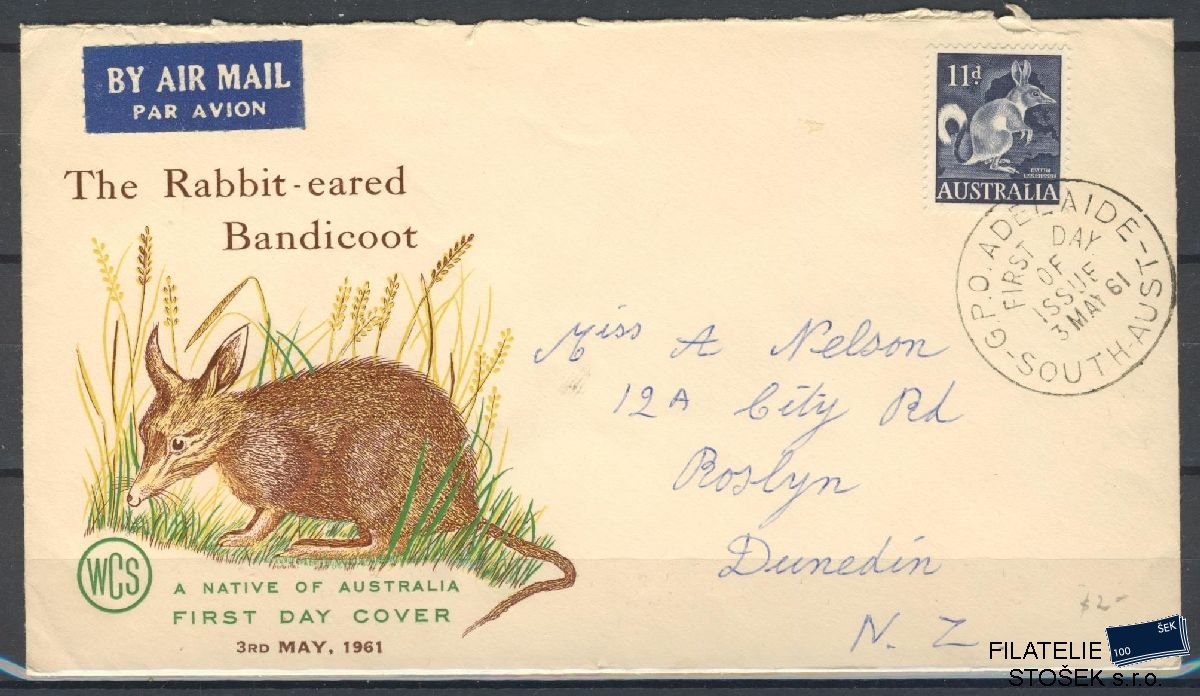 BY AIR MAIL
PAR AVION
11d.
AUSTRALIA
The Rabbit-eared
Bandicoot
G.P.O. ADELAIDE-STH-AUST
FIRST DAY
OF
ISSUE
3 MAY 61
Miss A Nelson
12A City Rd
Roslyn
Dunedin
N. Z
WCS
A NATIVE OF AUSTRALIA
FIRST DAY COVER
3RD MAY, 1961
$2-
FILATELIE
STOŠEK s.r.o.
100
ŠEK